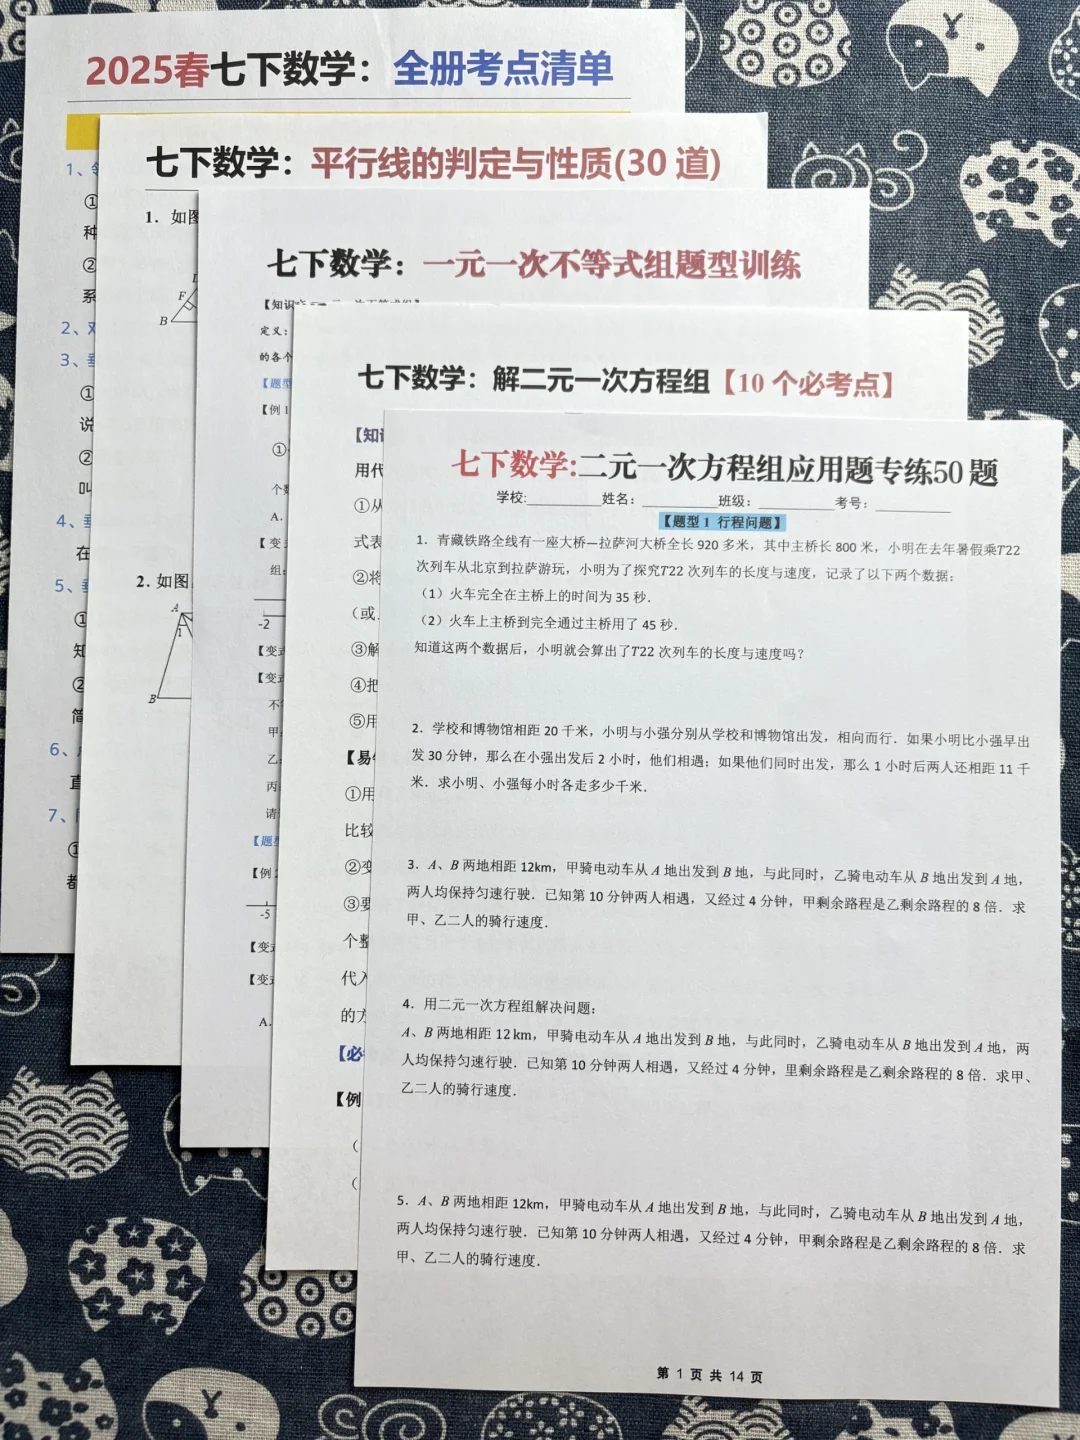 2025春七下数学：全册考点清单
1、
①
种
②
系
2、
3、
①
说
②
叫
4、
在
5、
①
知
②
简
6、
直
7、
①
都
七下数学：平行线的判定与性质(30 道)
1．如图
F
B
2．如图
A
1
B
七下数学：一元一次不等式组题型训练
【知识
定义：
的各个
【题型
【例 1
①
个数
A.
【变
组:
-2
【变式
【变式
不
甲
乙
丙
请
【题型
【例 2
-5
【变式
【变式
A.
七下数学：解二元一次方程组【10 个必考点】
【知识
用代
①从
式表
②将
（或
③解
④把
⑤用
【易
①用
比较
②变
③要
个整
代入
的方
【必
【例
（
（
七下数学:二元一次方程组应用题专练50 题
学校:__________姓名：__________班级：__________考号：__________
【题型 1 行程问题】
1．青藏铁路全线有一座大桥—拉萨河大桥全长 920 多米，其中主桥长 800 米，小明在去年暑假乘T22
次列车从北京到拉萨游玩，小明为了探究T22 次列车的长度与速度，记录了以下两个数据：
（1）火车完全在主桥上的时间为 35 秒．
（2）火车上主桥到完全通过主桥用了 45 秒．
知道这两个数据后，小明就会算出了T22 次列车的长度与速度吗？
2．学校和博物馆相距 20 千米，小明与小强分别从学校和博物馆出发，相向而行．如果小明比小强早出
发 30 分钟，那么在小强出发后 2 小时，他们相遇；如果他们同时出发，那么 1 小时后两人还相距 11 千
米．求小明、小强每小时各走多少千米．
3．A、B 两地相距 12km，甲骑电动车从 A 地出发到 B 地，与此同时，乙骑电动车从 B 地出发到 A 地，
两人均保持匀速行驶．已知第 10 分钟两人相遇，又经过 4 分钟，甲剩余路程是乙剩余路程的 8 倍．求
甲、乙二人的骑行速度．
4．用二元一次方程组解决问题：
A、B 两地相距 12 km，甲骑电动车从 A 地出发到 B 地，与此同时，乙骑电动车从 B 地出发到 A 地，两
人均保持匀速行驶．已知第 10 分钟两人相遇，又经过 4 分钟，里剩余路程是乙剩余路程的 8 倍．求甲、
乙二人的骑行速度．
5．A、B 两地相距 12km，甲骑电动车从 A 地出发到 B 地，与此同时，乙骑电动车从 B 地出发到 A 地，
两人均保持匀速行驶．已知第 10 分钟两人相遇，又经过 4 分钟，甲剩余路程是乙剩余路程的 8 倍．求
甲、乙二人的骑行速度．
第 1 页 共 14 页